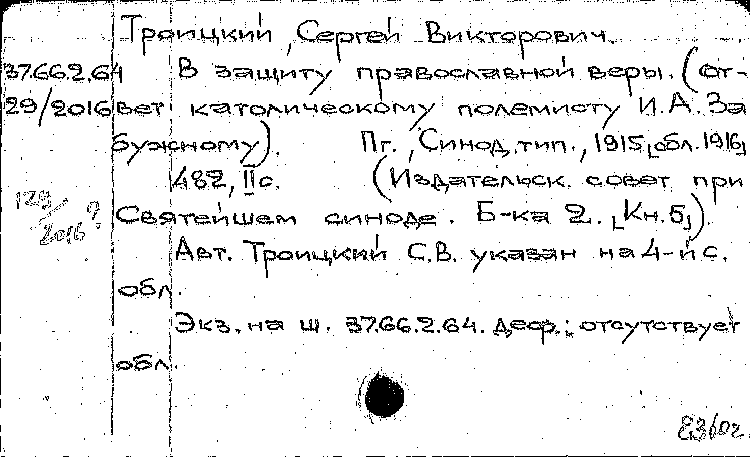 Троицкий, Сергей Викторович.
37.66.2.64 В защиту православной веры. (От-
29/2016 вет католическому полемисту И.А. За
бужному). Пг., Синод. тип., 1915 [обл. 1916]
482, II с. (Издательск. совет при
129/2016? Святейшем синоде. Б-ка 2. [Кн. 5])
Авт. Троицкий С.В. указан на 4-й с.
обл.
Экз. на ш. 37.66.2.64. деф.: отсутствует
обл.